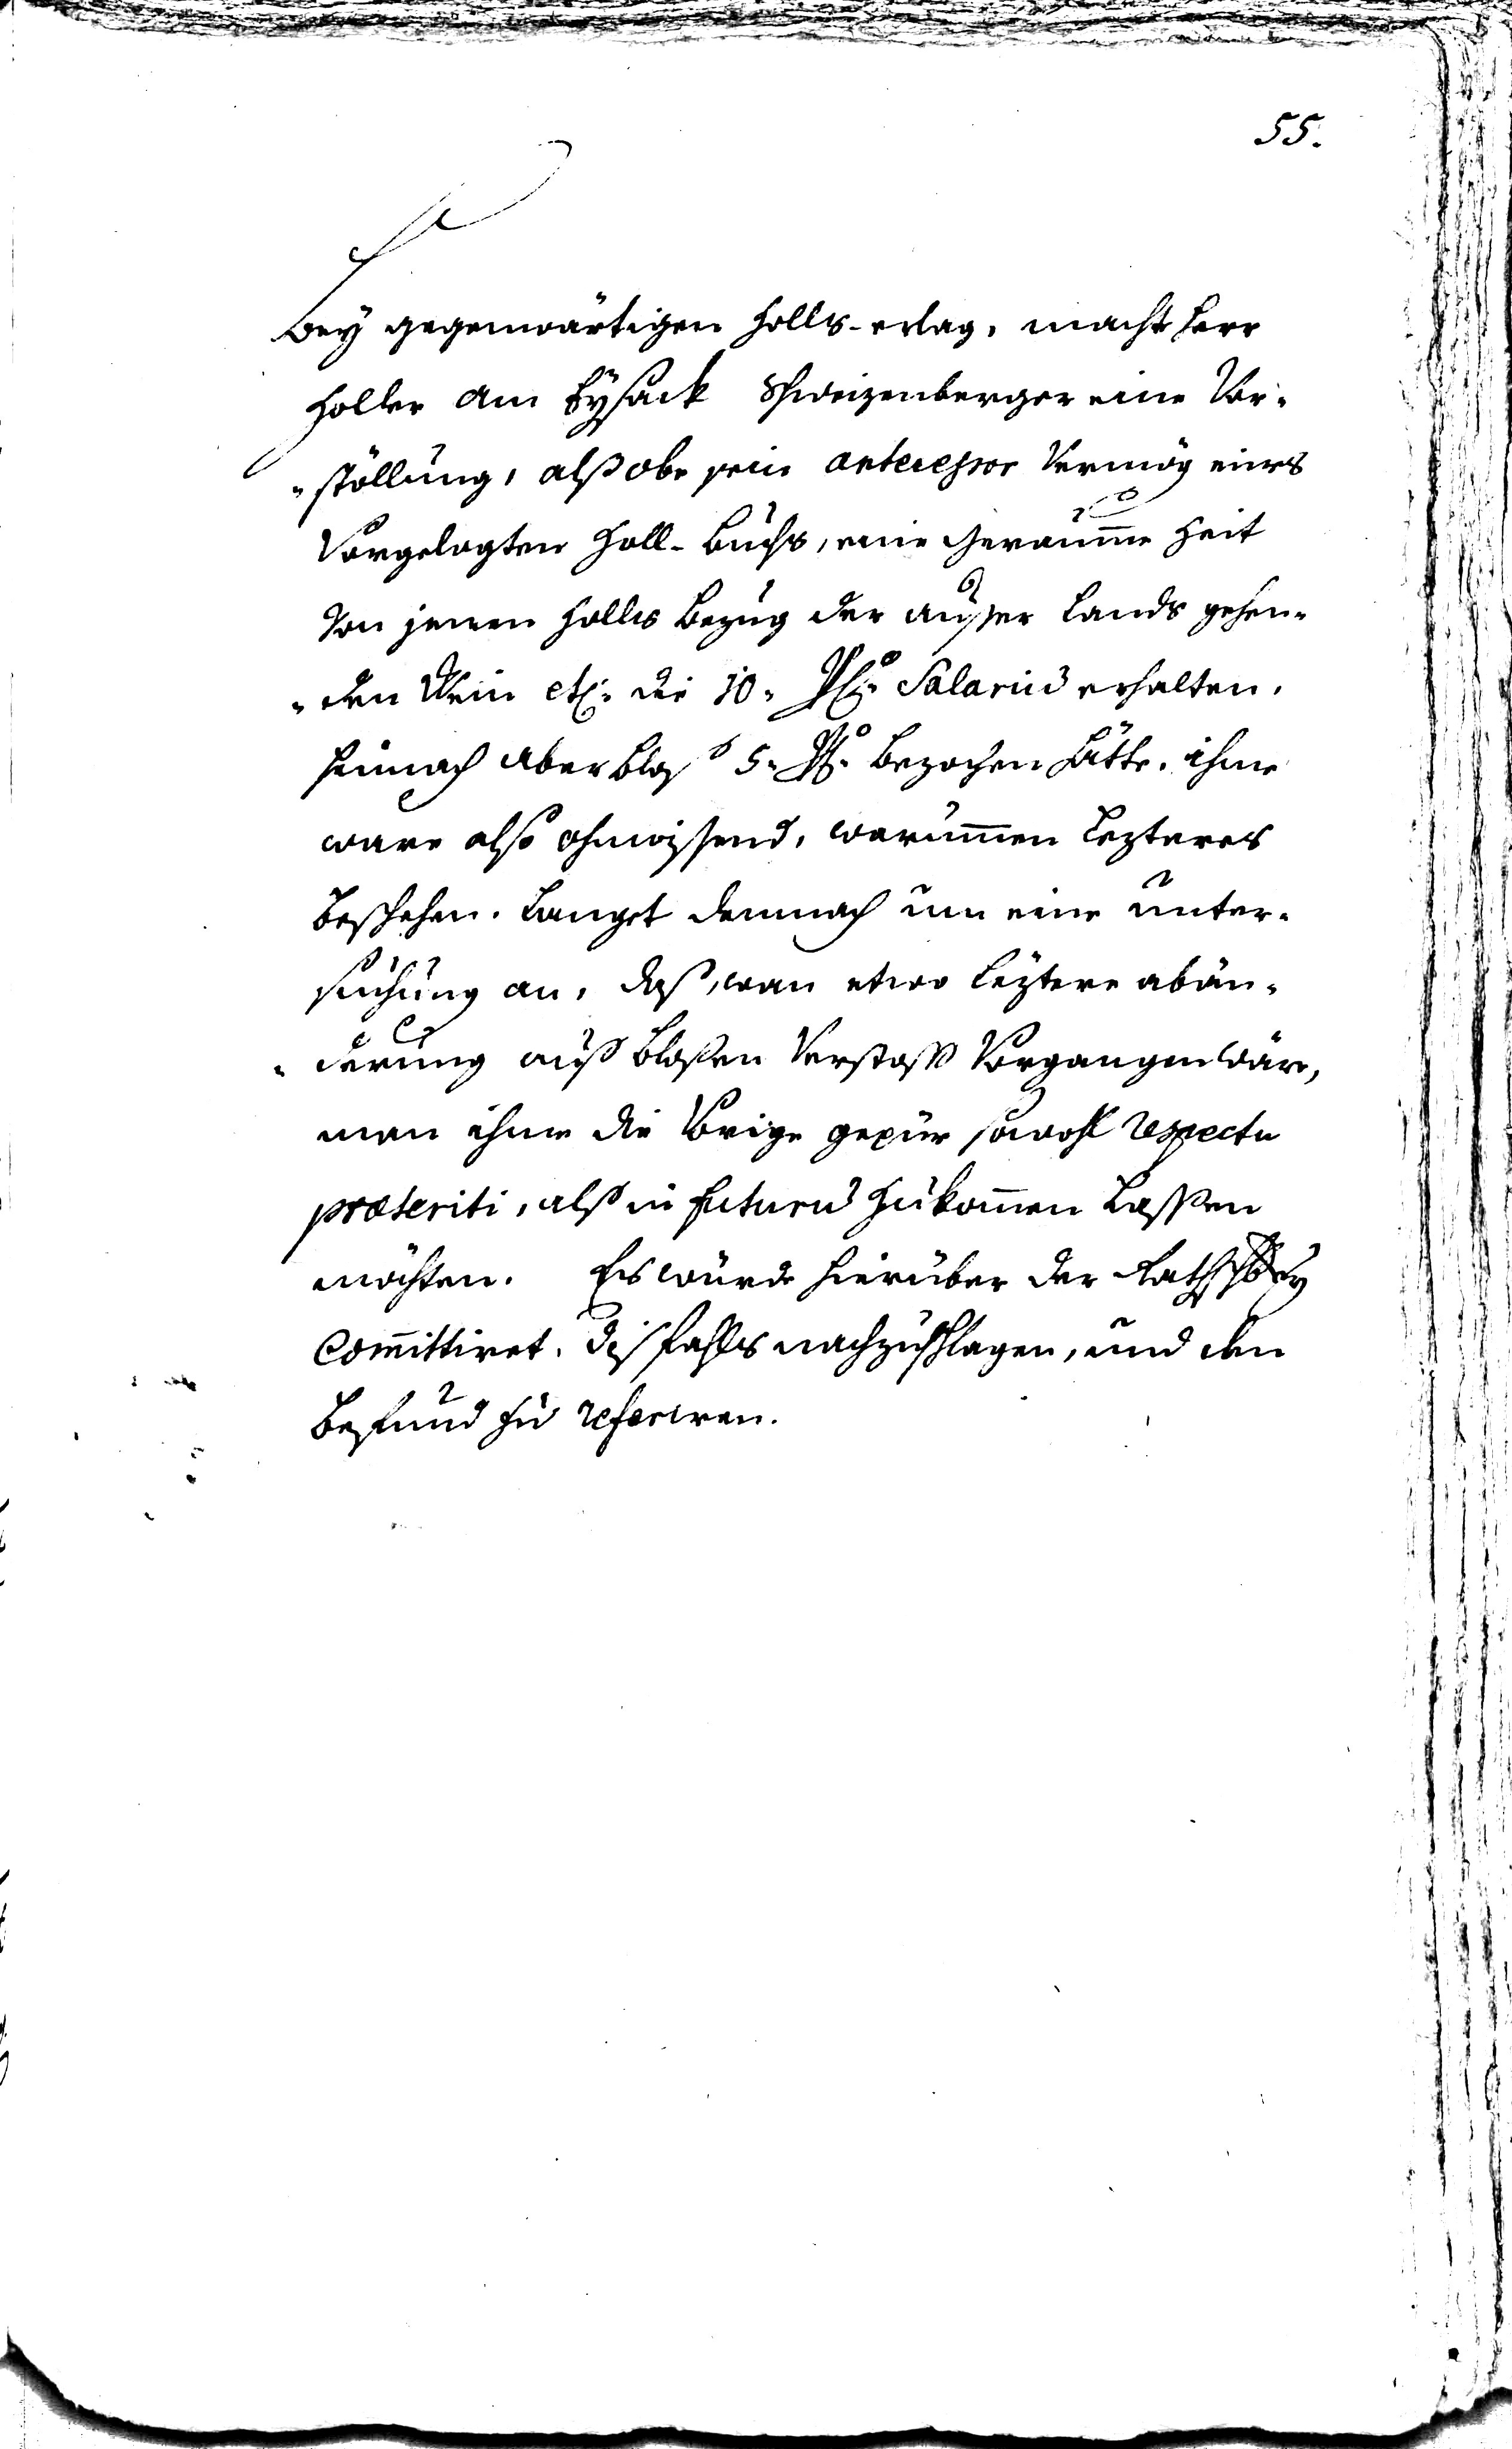 55.
Bey gegenwärtigen Zolls-erlag, macht Herr
Zoller am Eysack Schweizenberger eine Vor-
-stöllung, alß obe sein antecessor Vermög eines
Vorgelegten Zoll-Buchs, eine geraumme Zeit
Von jenen Zolles Bezug der ausser Lands gehen-
-den Wein etc: die 10. Salariū erhalten,
hinnach aber blos 5. bezochen hätte. ihme
ware also ohnwissend, warummen Lezteres
beschehen. Langet demnach um eine unter-
suchung an, daß, wan etwo leztere abän-
-derung auß bloßen Verstoß Vorgangen wäre,
man ihme die Vorige gepür sowohl respectu
præteriti, alß in futurū zukom̄en Laßen
möchten. Es wurde hierüber der
Com̄ittiret, disfahls nachzuschlagen, und den
Befund zu referiren.